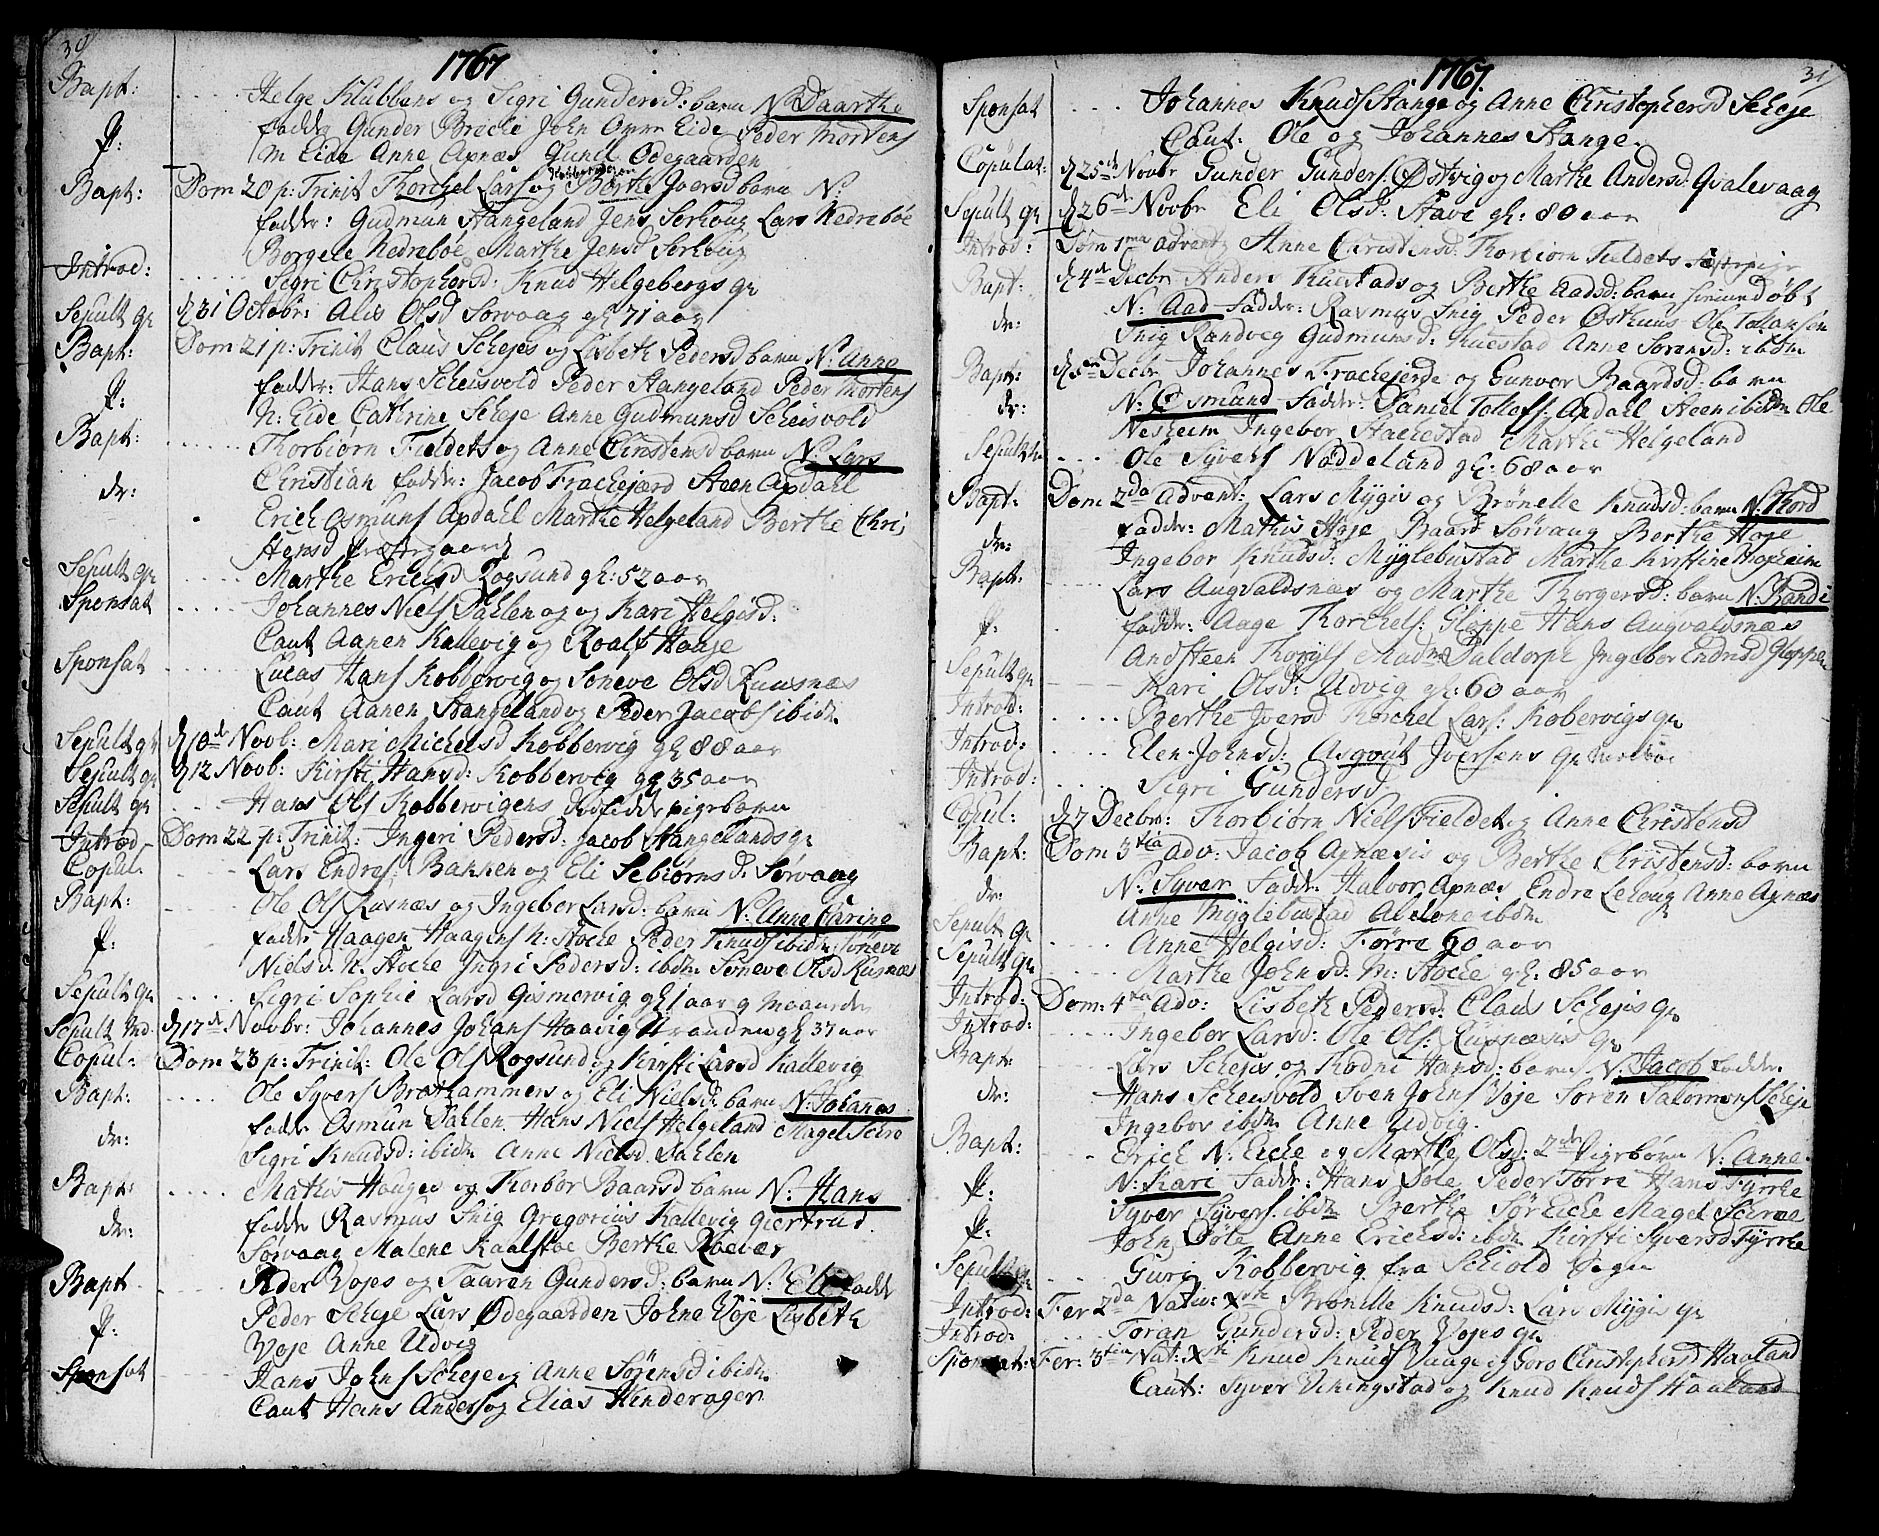 30
1767
Bapt: .... Helge Klubbens og Sigri Gundersd: barn N: Daarthe
faddr Gunder Breche John Omm Eide Peder Mortens
m Eide Anne Apnæs Gunil Odegaarden
Bapt: Dom 20 p: Trinit Thorchel Lars og Berthe Joersd barn N:
faddr: Gudmun Stangeland Jens Serhoug Lars Nedrebøe
Borgele Nedrebøe Marthe Jensd Serhoug
Introd: ..... Sigri Christophersd: Knud Helgebergs qv
Sepult qv d 31 Octobr: Alis Olsd Sørvaag gl 71 aar
Bapt: Dom 21 p: Trinit Claus Schejes og Lisbeth Pedersd barn N: Anne
faddr: Hans Scheisvold Peder Stangeland Peder Mortens
N: Eide Cathrine Scheje Anne Gudmunsd Scheisvold
Bapt: ...... Thorbiørn Fieldets og Anne Christensd barn N: Lars
dr: Christian faddr: Jacob Frachejærd Steen Apdahl
Erich Osmuns Apdahl Marthe Helgeland Berthe Chri
stensd Præstegaard
Sepult qv .... Marthe Ericisd Rogsund gl: 52 aar
Sponsat .... Johannes Niels Dahlen og og Kari Helgisd:
Caut Aanen Kallevig og Roalf Hauje
Sponsat .... Lucas Hans Kobbervig og Søneve Olsd Ruusnæs
Caut Aanen Stangeland og Peder Jacobs ibidm
Sepult qv d 10d Novb: Mari Michelsd Kobbervig gl 88 aar
Sepult qv d 12 Novb: Kirsti Hansd: Kobbervig gl 35 aar
Sepult qv ... Hans Ols Kobbervigens pigebarn
Introd Dom 22 p: Trinit: Ingeri Pedersd: Jacob Stangelands qv
Copul: Lars Endres: Bakken og Eli Sebiørnsd: Sørvaag
Bapt: .... Ole Ols Rusnæs og Ingebor Larsd: barn N: Anne Carine
faddr Haagen Haagens N: Stoche Peder Knuds ibidm Søneve
Nielsd N. Stoche Ingri Pedersd: ibdm Søneve Olsd Rusnæs
Sepult qv ..... Sigri Sophie Larsd Gismervig gl 1 aar 9 Maaneder
Sepult Md: d 17d Novbr: Johannes Johans Haavig gl 37 aar
Copul: Dom 23 p: Trinit: Ole Ols Rogsund og Kirsti Larsd Kallevig
Bapt: .... Ole Syvers Brathammers og Eli Nielsd: barn N: Johanes
dr: faddr Osmun Dahlen Hans Niels Helgeland Magel Schro
Sigri Knudsd: ibidm Anne Nielsd Dahlen
Bapt: ..... Mathis Hauges og Thorbor Baarsd barn N: Hans
dr: faddr Rasmus Snig Gregorius Kallevig Giertrud
Sørvaag Malene Kaalstøe Berthe Høevær
Bapt ... Peder Vojes og Taaren Gundersd: barn N: Eli faddr
Peder Scheje Lars Ødegaarden Johne Voje Lisbeth
Voje Anne Udvig
Sponsat ... Hans Johns Scheje og Anne Sørensd ibidm
Caut Hans Anders og Elias Hinderager
31
1767.
Sponsat .... Johannes Knuds Stange og Anne Christophersd Scheje
Caut: Ole og Johannes Stange
Copulat: d 25d Novbr Gunder Gunders: Østvig og Marthe Andersd: Qvalevaag
Sepult qv d 26d Novbr Eli Olsd: Stave gl: 80 aar
Introd: Dom 1ma Advent Anne Christensd: Thorbiørn Fieldets
Bapt: d 4d Decbr Anders Ruestads og Berthe Aadsd: barn døbt
dr: N: Aad Faddr: Rasmus Snig Peder Østhuus Ole Tollansen
Snig Randveg Gudmunsd: Ruestad Anne Sørensd: ibdm
Bapt: d Decbr Johannes Frachejerde og Gunvor Baardsd: barn
dr: N: Osmund Faddr: Daniel Tollefs: Apdahl Steen ibidm Ole
Nesheim Ingebor Stachestad Marthe Helgeland
Sepult .... Ole Syvers Nøddeland gl: 68 aar
Bapt: Dom: 2da Advent: Lars Mÿgis og Brønelle Knudsd: barn N: Thord
dr: Faddr: Mathis Hoje Baard Sørvaag Berthe Hoje
Ingebor Knudsd: Myglebustad Marthe Kirstine Hopheim
Bapt: Lars Augvaldsnæs og Marthe Thorgersd: barn N: Randi
faddr: Aage Thorchels: Gloppe Hans Augvaldsnæs
Andsteen Thorgils Madme Daldorph Ingebor Endresd Gloppen
Sepult qv .... Kari Olsd: Udvig gl: 60 aar
Introd: .... Berthe Joersd Thorchel Lars: Kobervigs qv
Introd: .... Elen Johnsd: Asgout Joersens qv
Introd: .... Sigri Gundersd
Copul: d 7 Decbr: Thorbiørn Niels Fieldet og Anne Christensd
Bapt: Dom 3tia Adv: Jacob Apnæsis og Berthe Christensd: barn
dr: N: Syver Faddr: Halvor Apnæs Endre Lehoug Anne Apnæs
Anne Mÿglebustad Alelone ibdm
Sepult qv .... Anne Helgisd: Førre 60 aar
Sepult qv .... Marthe Johnsd: N: Stoche gl: 85 aar
Introd: Dom: 4ta Adv: Lisbeth Pedersd: Claus Schejis qv
Introd: .... Ingebor Larsd: Ole Ols: Ruusnæsis qv
Bapt: .... Lars Schejes og Thodni Hansd: barn N: Jacob Faddr.
dr: Hans Scheisvold Sven Johns Voje Søren Salomons Scheje
Ingebor ibidm Anne Udvig.
Bapt: - Erich N: Eiche og Marthe Olsd: 2de Pigebørn N: Anne
N: Kari Faddr: Hans Døle Peder Førre Hans Fÿrche
Syver Syvers: ibidm Berthe Sør Eiche Magel Schroe
John Døle Anne Erichsd: ibdm Kirsti Syversd Fÿrche
Sepult qv .... Guri Kobbervig fra Schiold Sogn
Introd: Fer 2da Nativ: Xsti Brønelle Knudsd: Lars Mÿgis qv
Introd: .... Toran Gundersd: Peder Vojes qv
Sponsat: Fer: 3tia Nat: Xsti Knud Knuds Vaage og Goro Christophersd Haaland
Caut: Syver Vikingstad og Knud Knuds Haaland